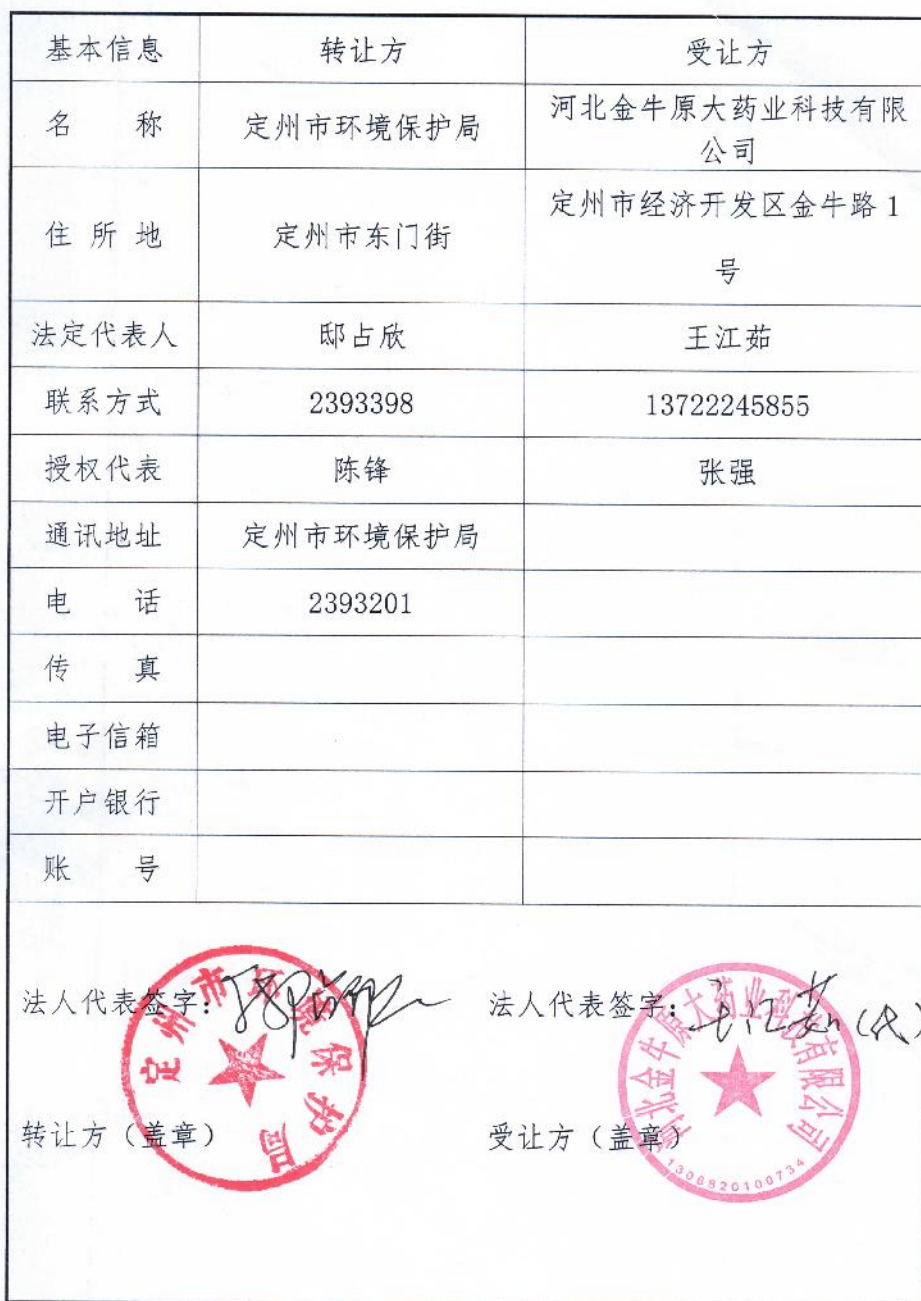 基本信息 转让方 受让方
名 称 定州市环境保护局 河北金牛原大药业科技有限
公司
住所地 定州市东门街 定州市经济开发区金牛路1
号
法定代表人 邸占欣 王江茹
联系方式 2393398 13722245855
授权代表 陈锋 张强
通讯地址 定州市环境保护局
电 话 2393201
传 真
电子信箱
开户银行
账 号
法人代表签字: 法人代表签字:王江茹(代)
定州市环境保护局
河北金牛原大药业科技有限公司
转让方(盖章) 受让方(盖章)
1306820100734